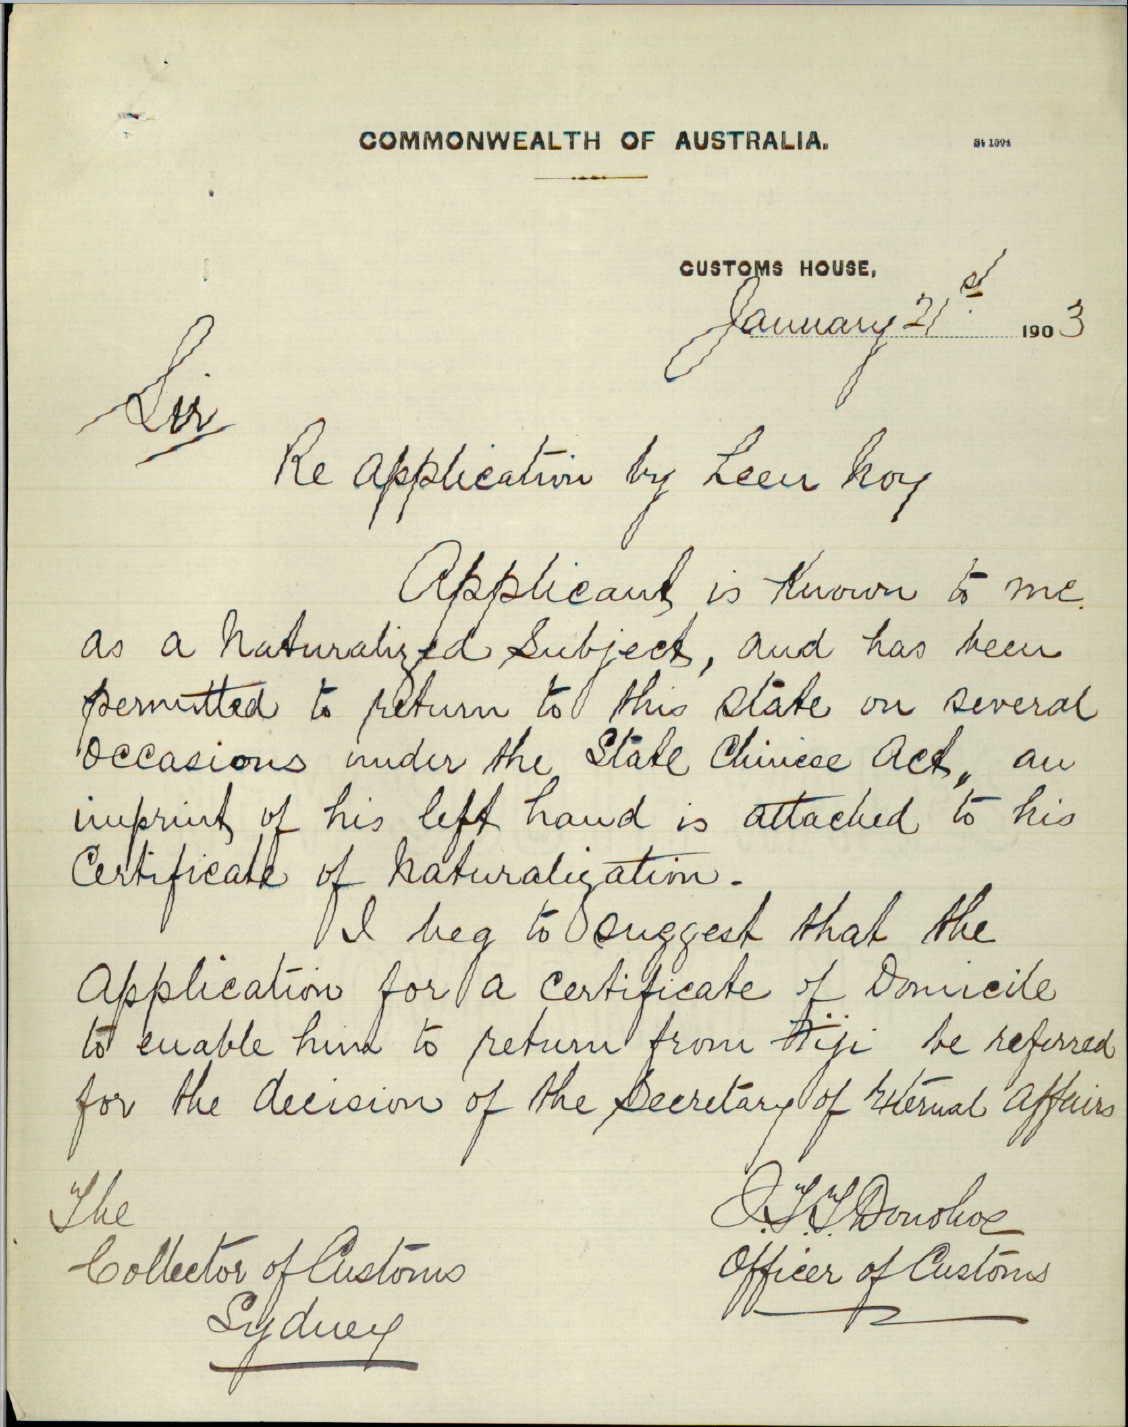 COMMONWEALTH OF AUSTRALIA.
St 1394
CUSTOMS HOUSE,
January 21st 1903
Sir
Re Application by Leen Noy
Applicant is Known to me
as a Naturalized Subject, and has been
permitted to return to this State on several
occasions under the State Chinese Act, an
imprint of his left hand is attached to his
Certificate of Naturalization.
I beg to suggest that the
Application for a Certificate of Domicile
to enable him to return from Fiji be referred
for the decision of the Secretary of External Affairs
The
Collector of Customs
Sydney
J.T.T. Donohoe
Officer of Customs